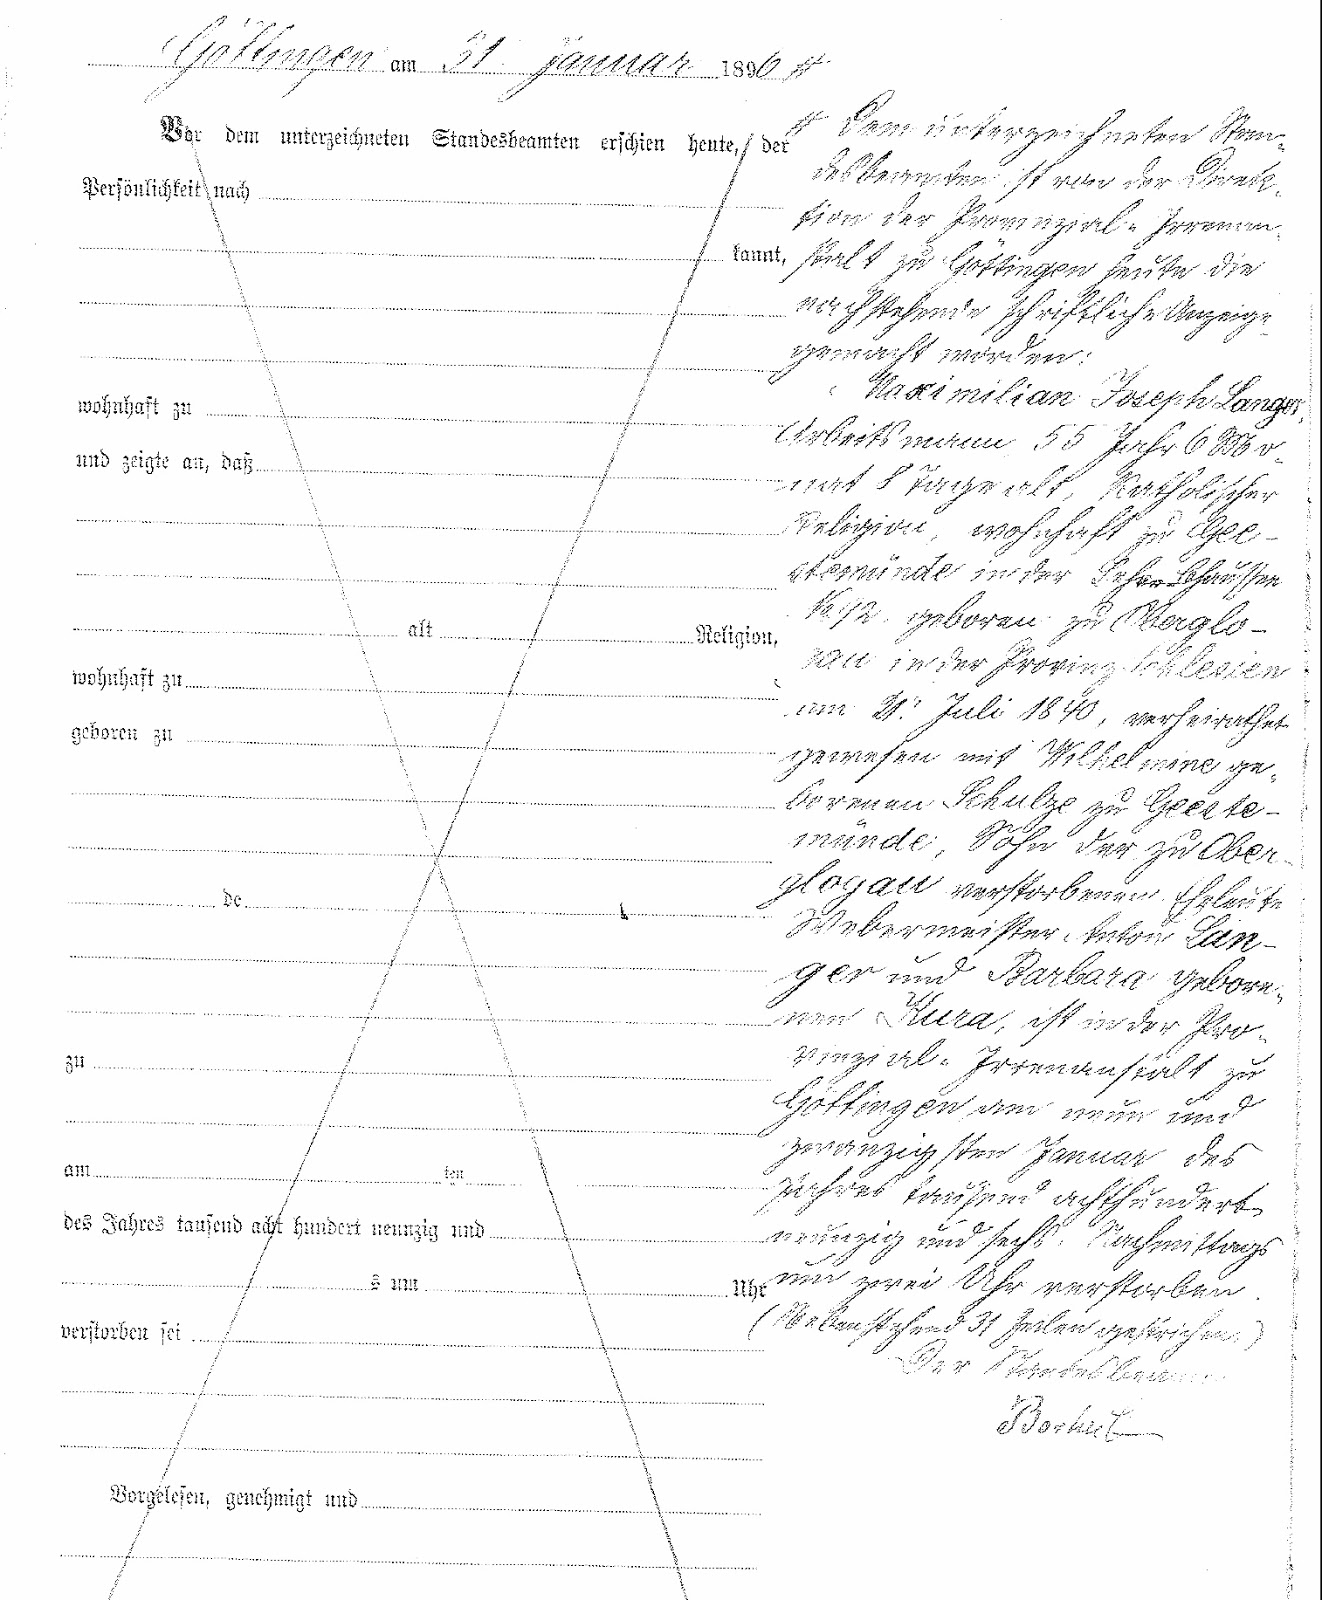 Göttingen am 31. Januar 1896 #
Vor dem unterzeichneten Standesbeamten erschien heute, der
Persönlichkeit nach
kannt,
wohnhaft zu
und zeigte an, daß
alt Religion,
wohnhaft zu
geboren zu
de
zu
am ten
des Jahres tausend acht hundert neunzig und
s um Uhr
verstorben sei
Vorgelesen, genehmigt und
# Dem unterzeichneten Stan-
desbeamten ist von der Direk-
tion der Provinzial-Irrenan-
stalt zu Göttingen heute die
nachstehende schriftliche Anzeige
gemacht worden:
Maximilian Joseph Langer,
Arbeitsmann, 55 Jahr 6 Mo-
nat 8 Tage alt, Katholischer
Religion, wohnhaft zu Gee-
stemünde in der
No 12. geboren zu Oberglo-
gau in der Provinz Schlesien
am 21. Juli 1840, verheirathet
gewesen mit Wilhelmine ge-
borenen Schulze zu Geeste-
münde, Sohn der zu Ober-
glogau verstorbenen Eheleute
Webermeister Anton Lan-
ger und Barbara gebore-
nen Kura, ist in der Pro-
vinzial-Irrenanstalt zu
Göttingen am neun und
zwanzigsten Januar des
Jahres tausend achthundert
neunzig und sechs, Nachmittags
um zwei Uhr verstorben.
(Nebenstehend 31 Zeilen gestrichen.)
Der Standesbeamte